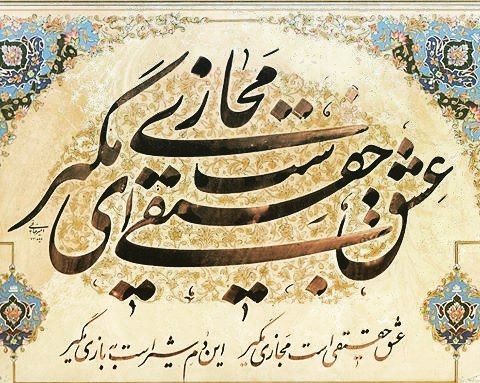 عشق حقیقی است مجازی مگیر
عشق حقیقی است مجازی مگیر این دم شیر است به بازی مگیر